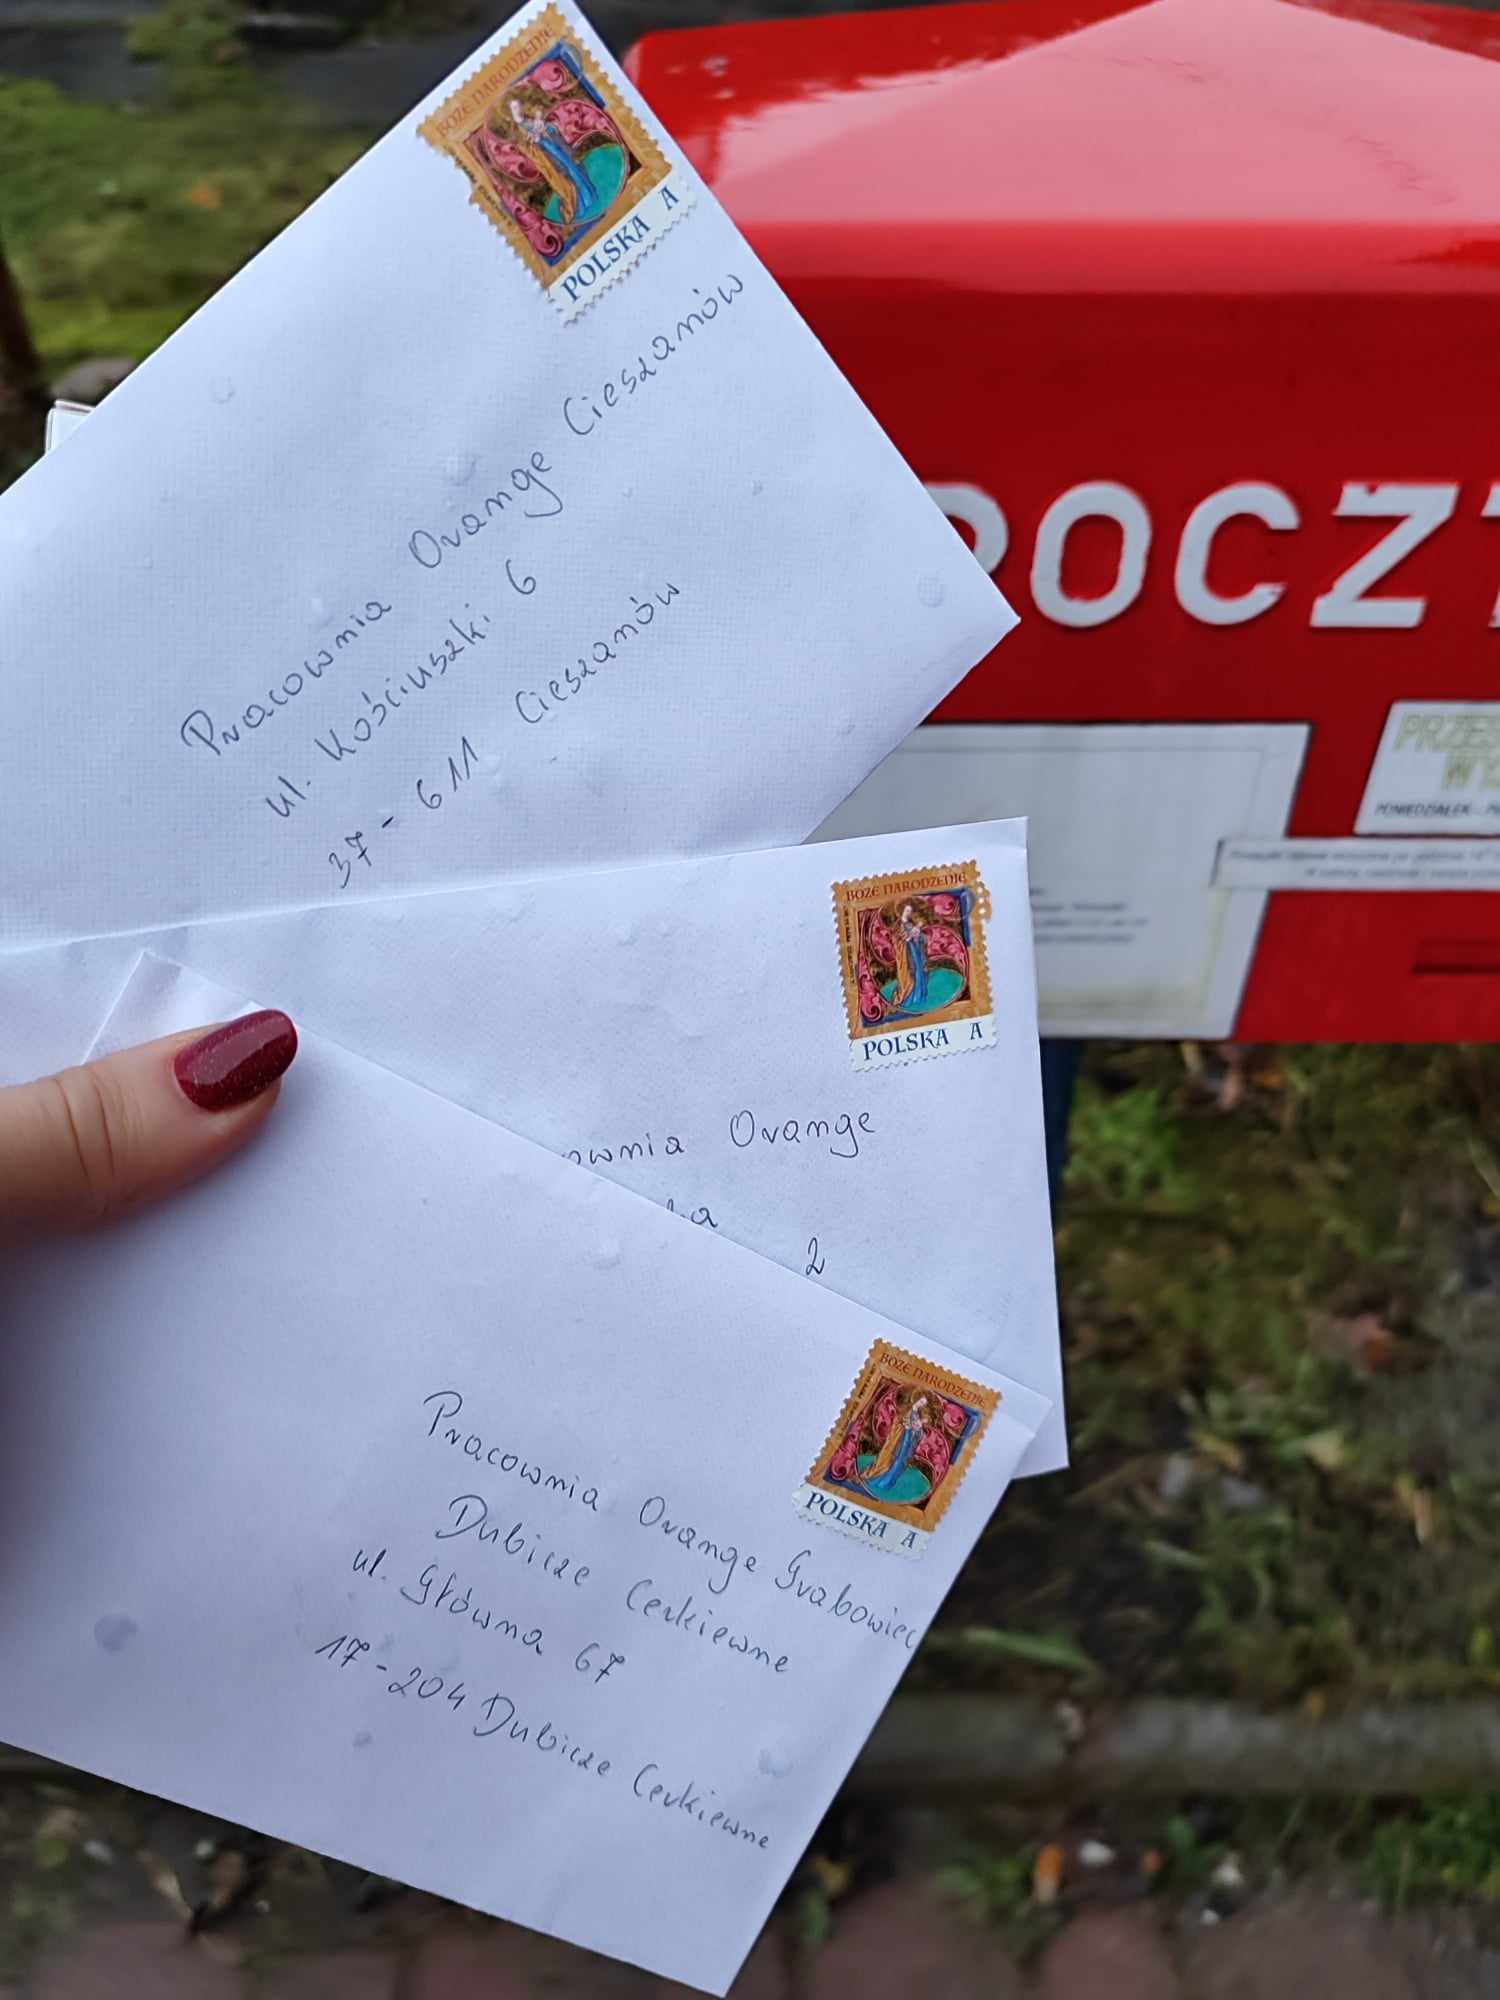 BOŻE NARODZENIE
POLSKA A
Pracownia Orange Cieszanów
ul. Kościuszki 6
37-611 Cieszanów
POCZT
PONIEDZIAŁEK - P
BOŻE NARODZENIE
POLSKA A
ownia Orange
2
BOŻE NARODZENIE
POLSKA A
Pracownia Orange Grabowiec
Dubicze Cerkiewne
ul. Główna 67
17-204 Dubicze Cerkiewne